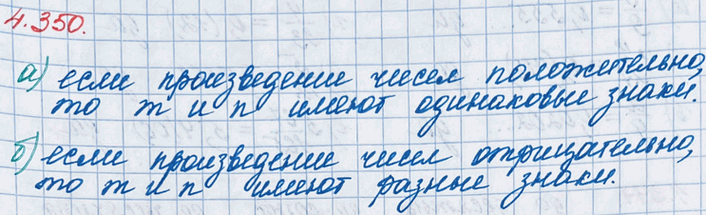 4.350.
а) если произведение чисел положительно,
то m и n имеют одинаковые знаки.
б) если произведение чисел отрицательно,
то m и n имеют разные знаки.